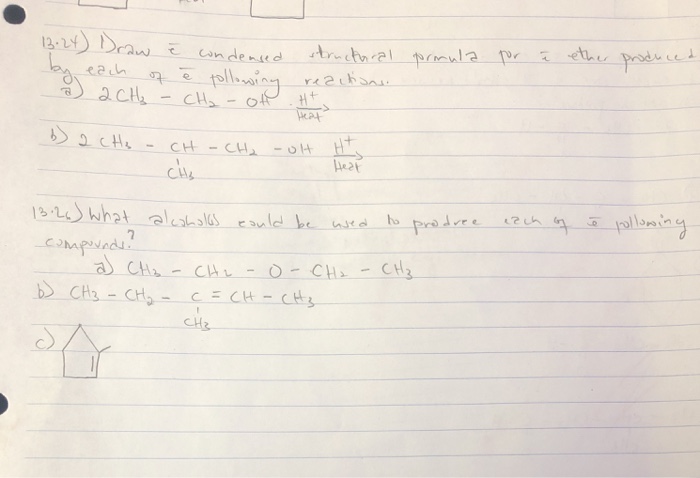 13.24) Draw ē condensed structural formula for ē ether produced
by each of ē following reactions.
a) 2CH₃ - CH₂ - OH H⁺
Heat
b) 2 CH₃ - CH - CH₂ - OH H⁺
CH₃ Heat
13.26) What alcohol(s) could be used to produce each of ē following
compounds?
a) CH₃ - CH₂ - O - CH₂ - CH₃
b) CH₃ - CH₂ - C = CH - CH₃
CH₃
c)